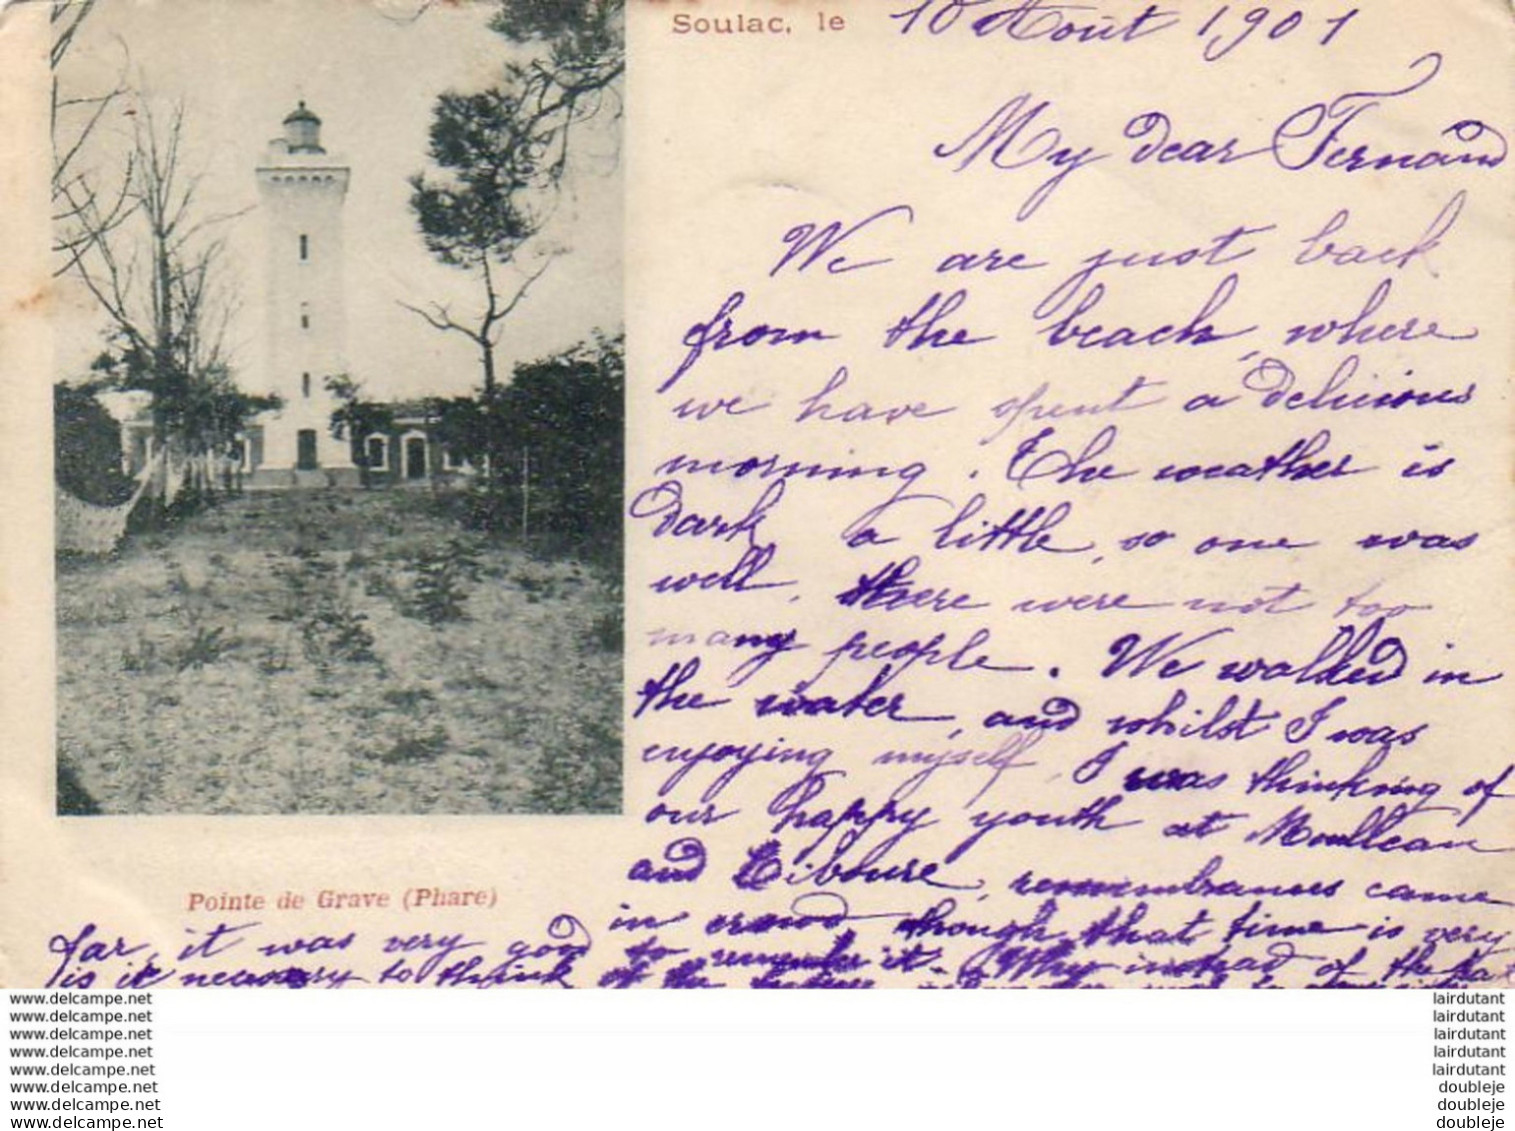 Soulac, le 10 Août 1901
My dear Fernand
We are just back
from the beach, where
we have spent a delicious
morning. The weather is
dark a little, so one was
well, there were not too
many people. We walked in
the water, and whilst I was
enjoying myself, I was thinking of
our happy youth at Moulleau
and Ciboure, remembrances came
in crowd, though that time is very
far, it was very good to remember it. Why instead of the
is it necessary to think of the future
Pointe de Grave (Phare)
www.delcampe.net
www.delcampe.net
www.delcampe.net
www.delcampe.net
www.delcampe.net
www.delcampe.net
www.delcampe.net
www.delcampe.net
lairdutant
lairdutant
lairdutant
lairdutant
lairdutant
doubleje
doubleje
doubleje